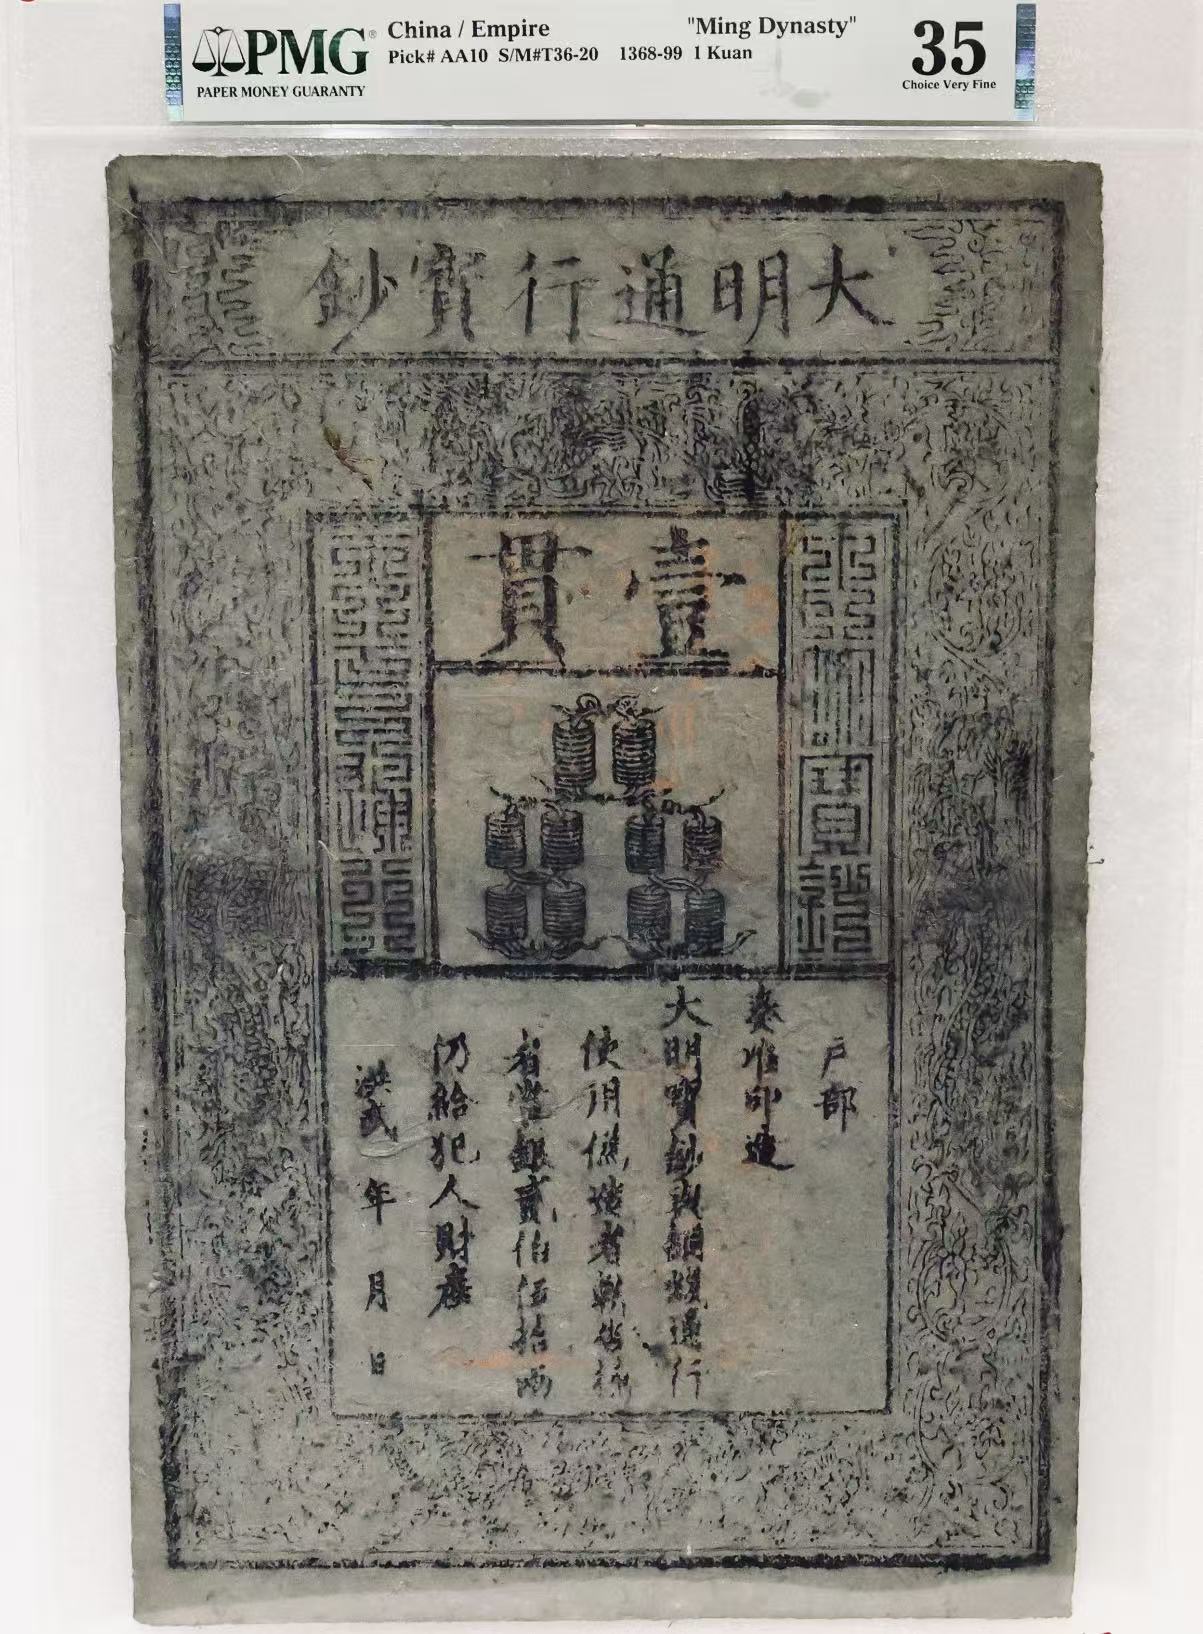 PMG®
PAPER MONEY GUARANTY
China / Empire "Ming Dynasty"
Pick# AA10 S/M#T36-20 1368-99 1 Kuan
35
Choice Very Fine
大明通行寶鈔
壹貫
大明寶鈔
天下通行
户部
奏准印造
大明寶鈔與銅錢通行
使用偽造者斬告捕
者賞銀貳伯伍拾兩
仍給犯人財產
洪武 年 月 日